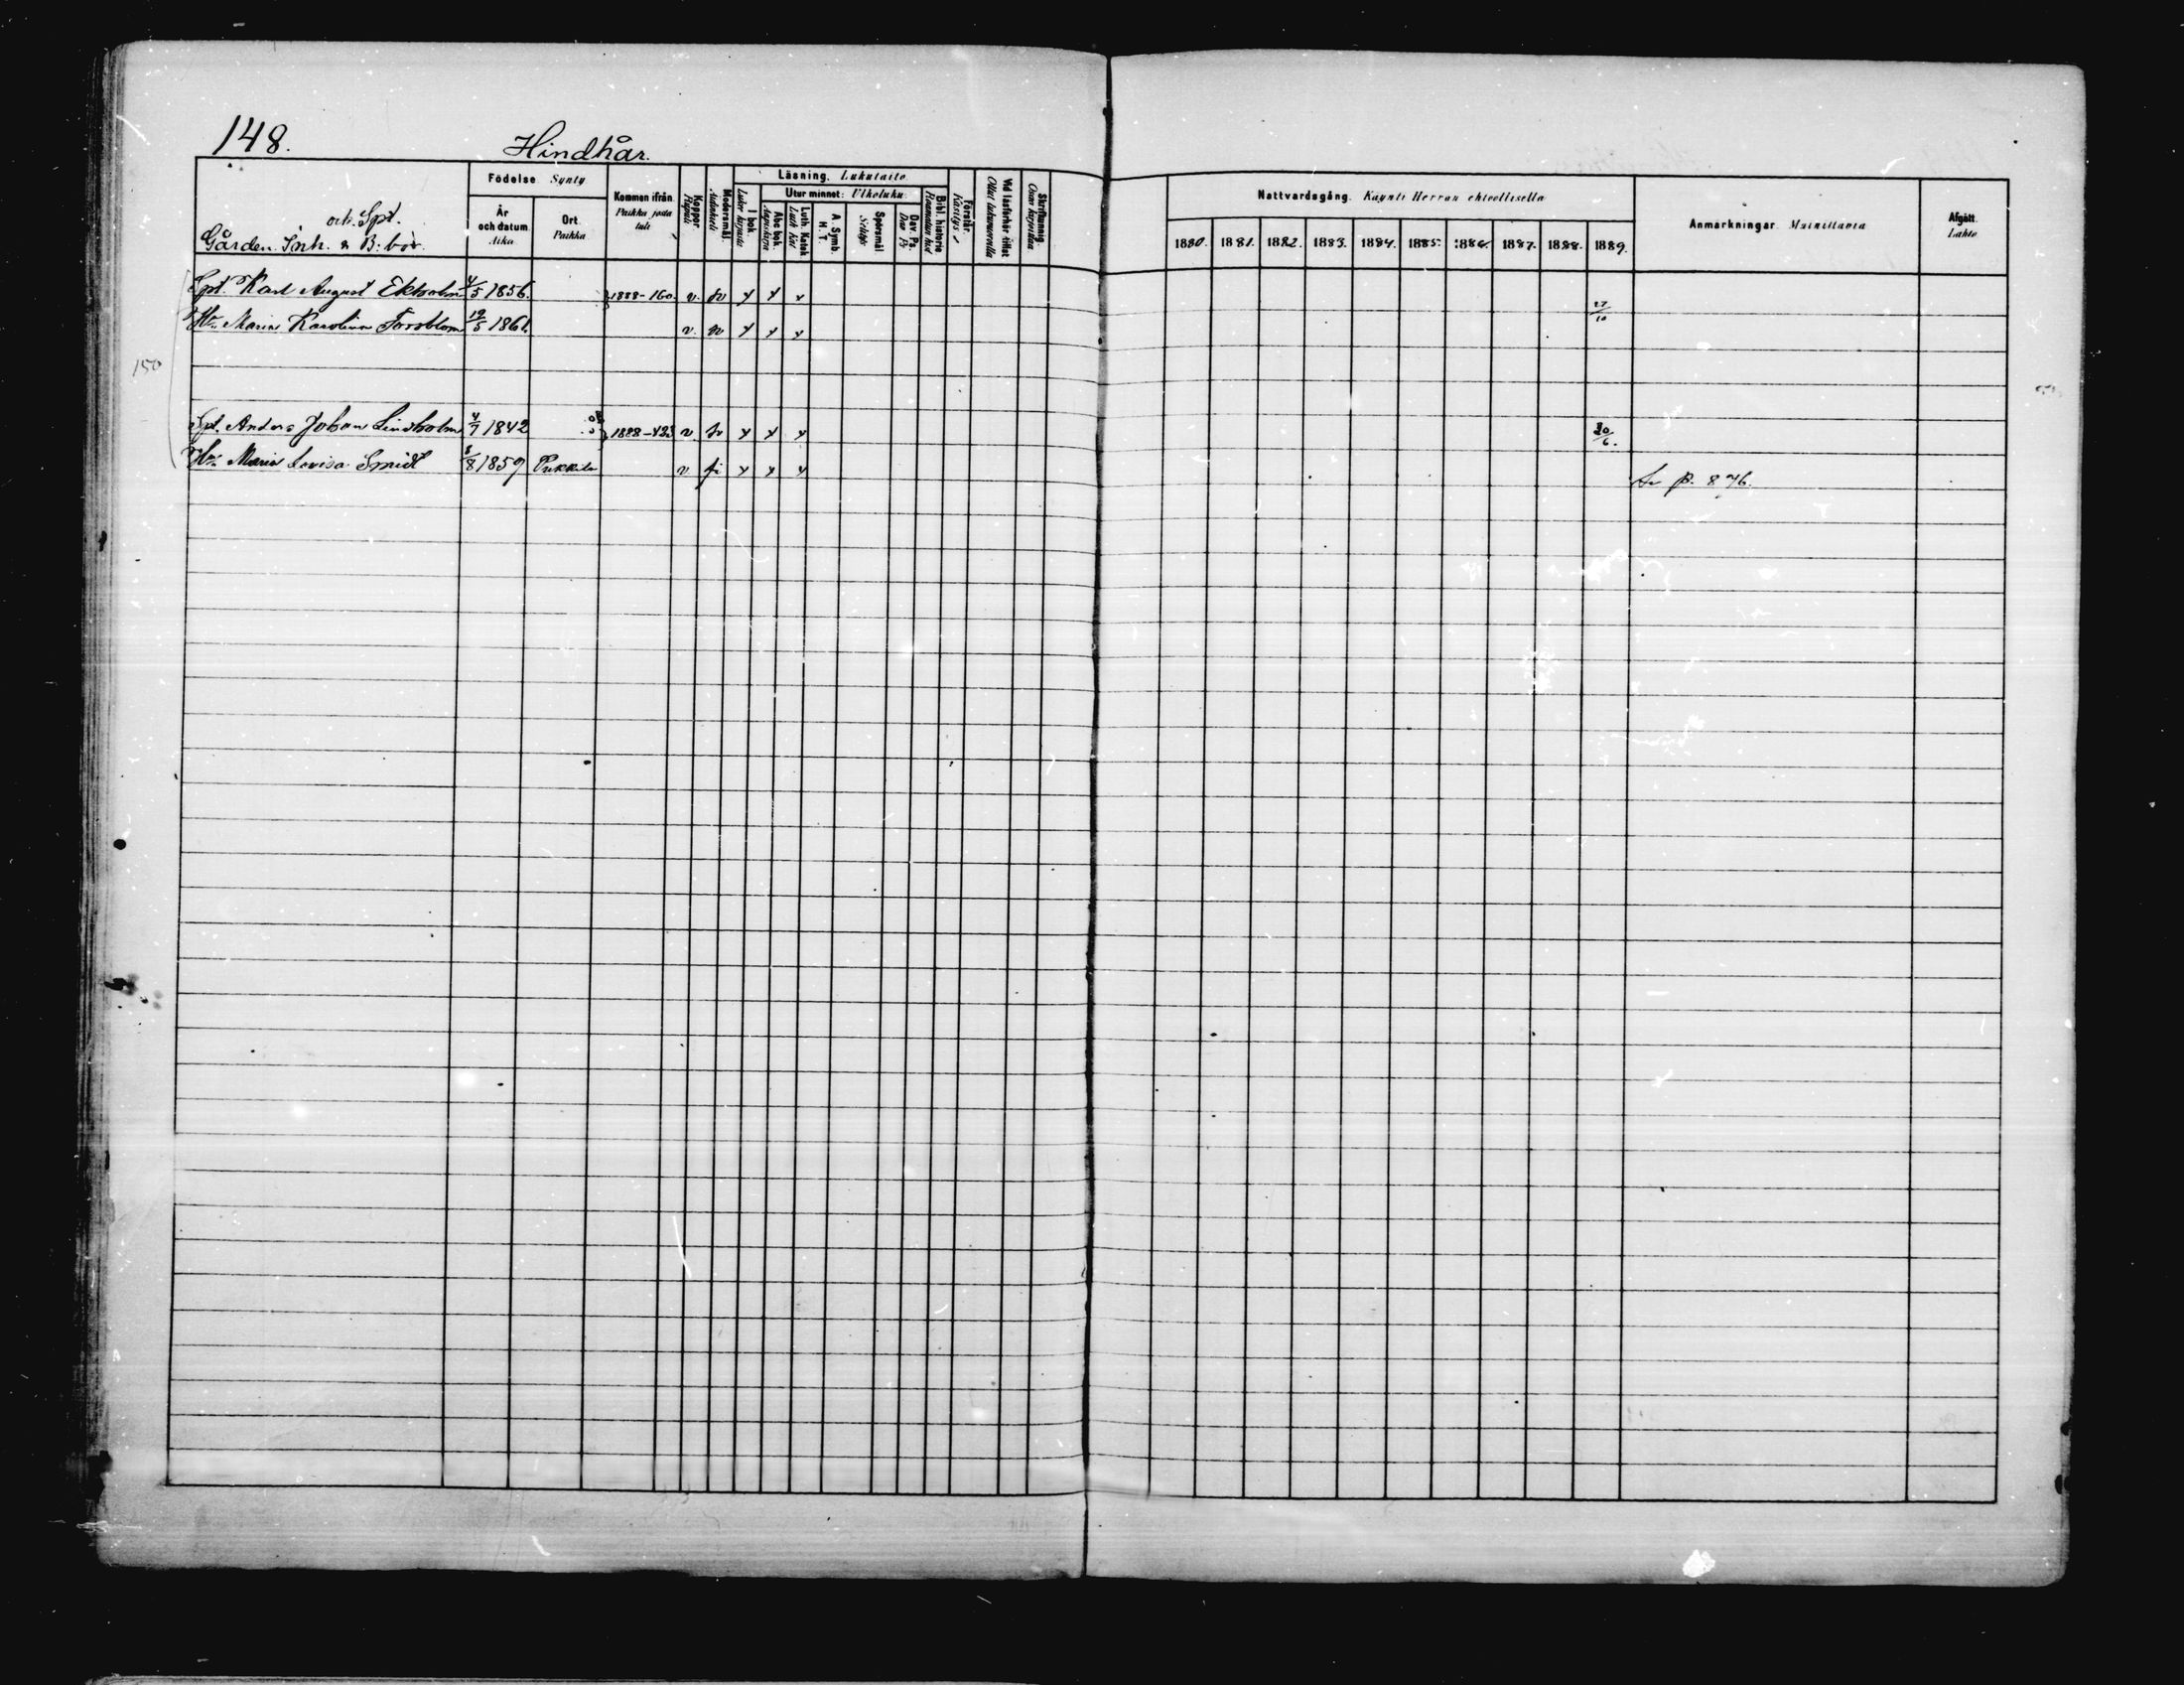 148.
Hindhår.
och Spt.
Gården. Inh. & B: bör.
Födelse. Synty
År och datum. Aika
Ort. Paikka
Kommen ifrån. Paikka josta tuli
Koppor. Rupuli
Modersmål. Äidinkieli
Läsning. Lukutaito
I bok. Lukee kirjasta
Utur minnet: Ulkoluku:
Abc bok. Aapiskirja
Luth. Katek. Luth. Kat.
A. Symb. H. T.
Spörsmål. Selitys
Dav. Ps. Dav. Ps.
Bibl. historie.
Förstår. Käsitys
Vid läsförhör tillst. Ollut lukuvuorolla
Skriftkunnig. Osaa kirjoittaa
Nattvardsgång. Käynti Herran ehtoollisella
1880. 1881. 1882. 1883. 1884. 1885. 1886. 1887. 1888. 1889.
Anmärkningar. Muistettavia
Afgått. Lähtö
Spt. Karl August Ekholm 4/5 1856. 1888-160. v. sv x x x 27/10
H:u Maria Karolina Forsblom 19/5 1861. v. sv x x x
150
Spt. Anders Johan Lindholm 4/7 1842 1888-433 v. sv x x x 30/6.
H:u Maria Lovisa Smidt 8/8 1859 Pukkila v fi x x x
Se p. 876.